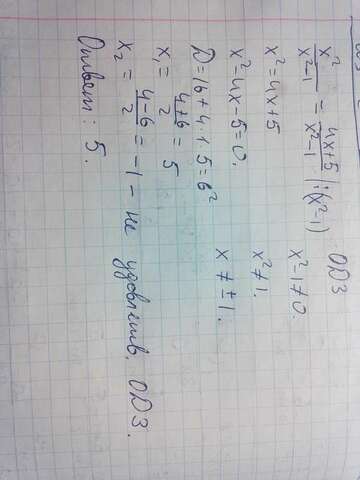 x²/(x²-1) = (4x+5)/(x²-1) | :(x²-1) ОДЗ
x² = 4x+5 x²-1≠0.
x²-4x-5=0. x²≠1.
D=16+4·1·5=6² x≠±1.
x₁ = (4+6)/2 = 5
x₂ = (4-6)/2 = -1 - не удовлетв. ОДЗ.
Ответ: 5.